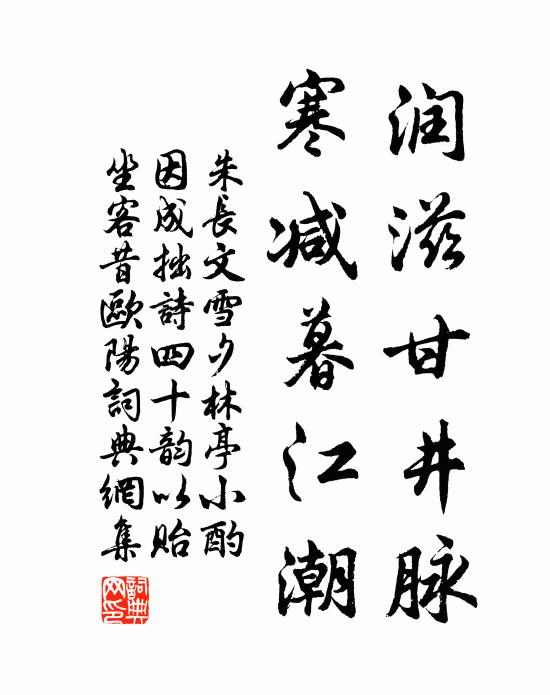 润滋甘井脉
寒减暮江潮
朱長文雪夕林亭小酌
因成拙詩四十韵以贻
坐客昔歐陽詞典網集
詞典
网印